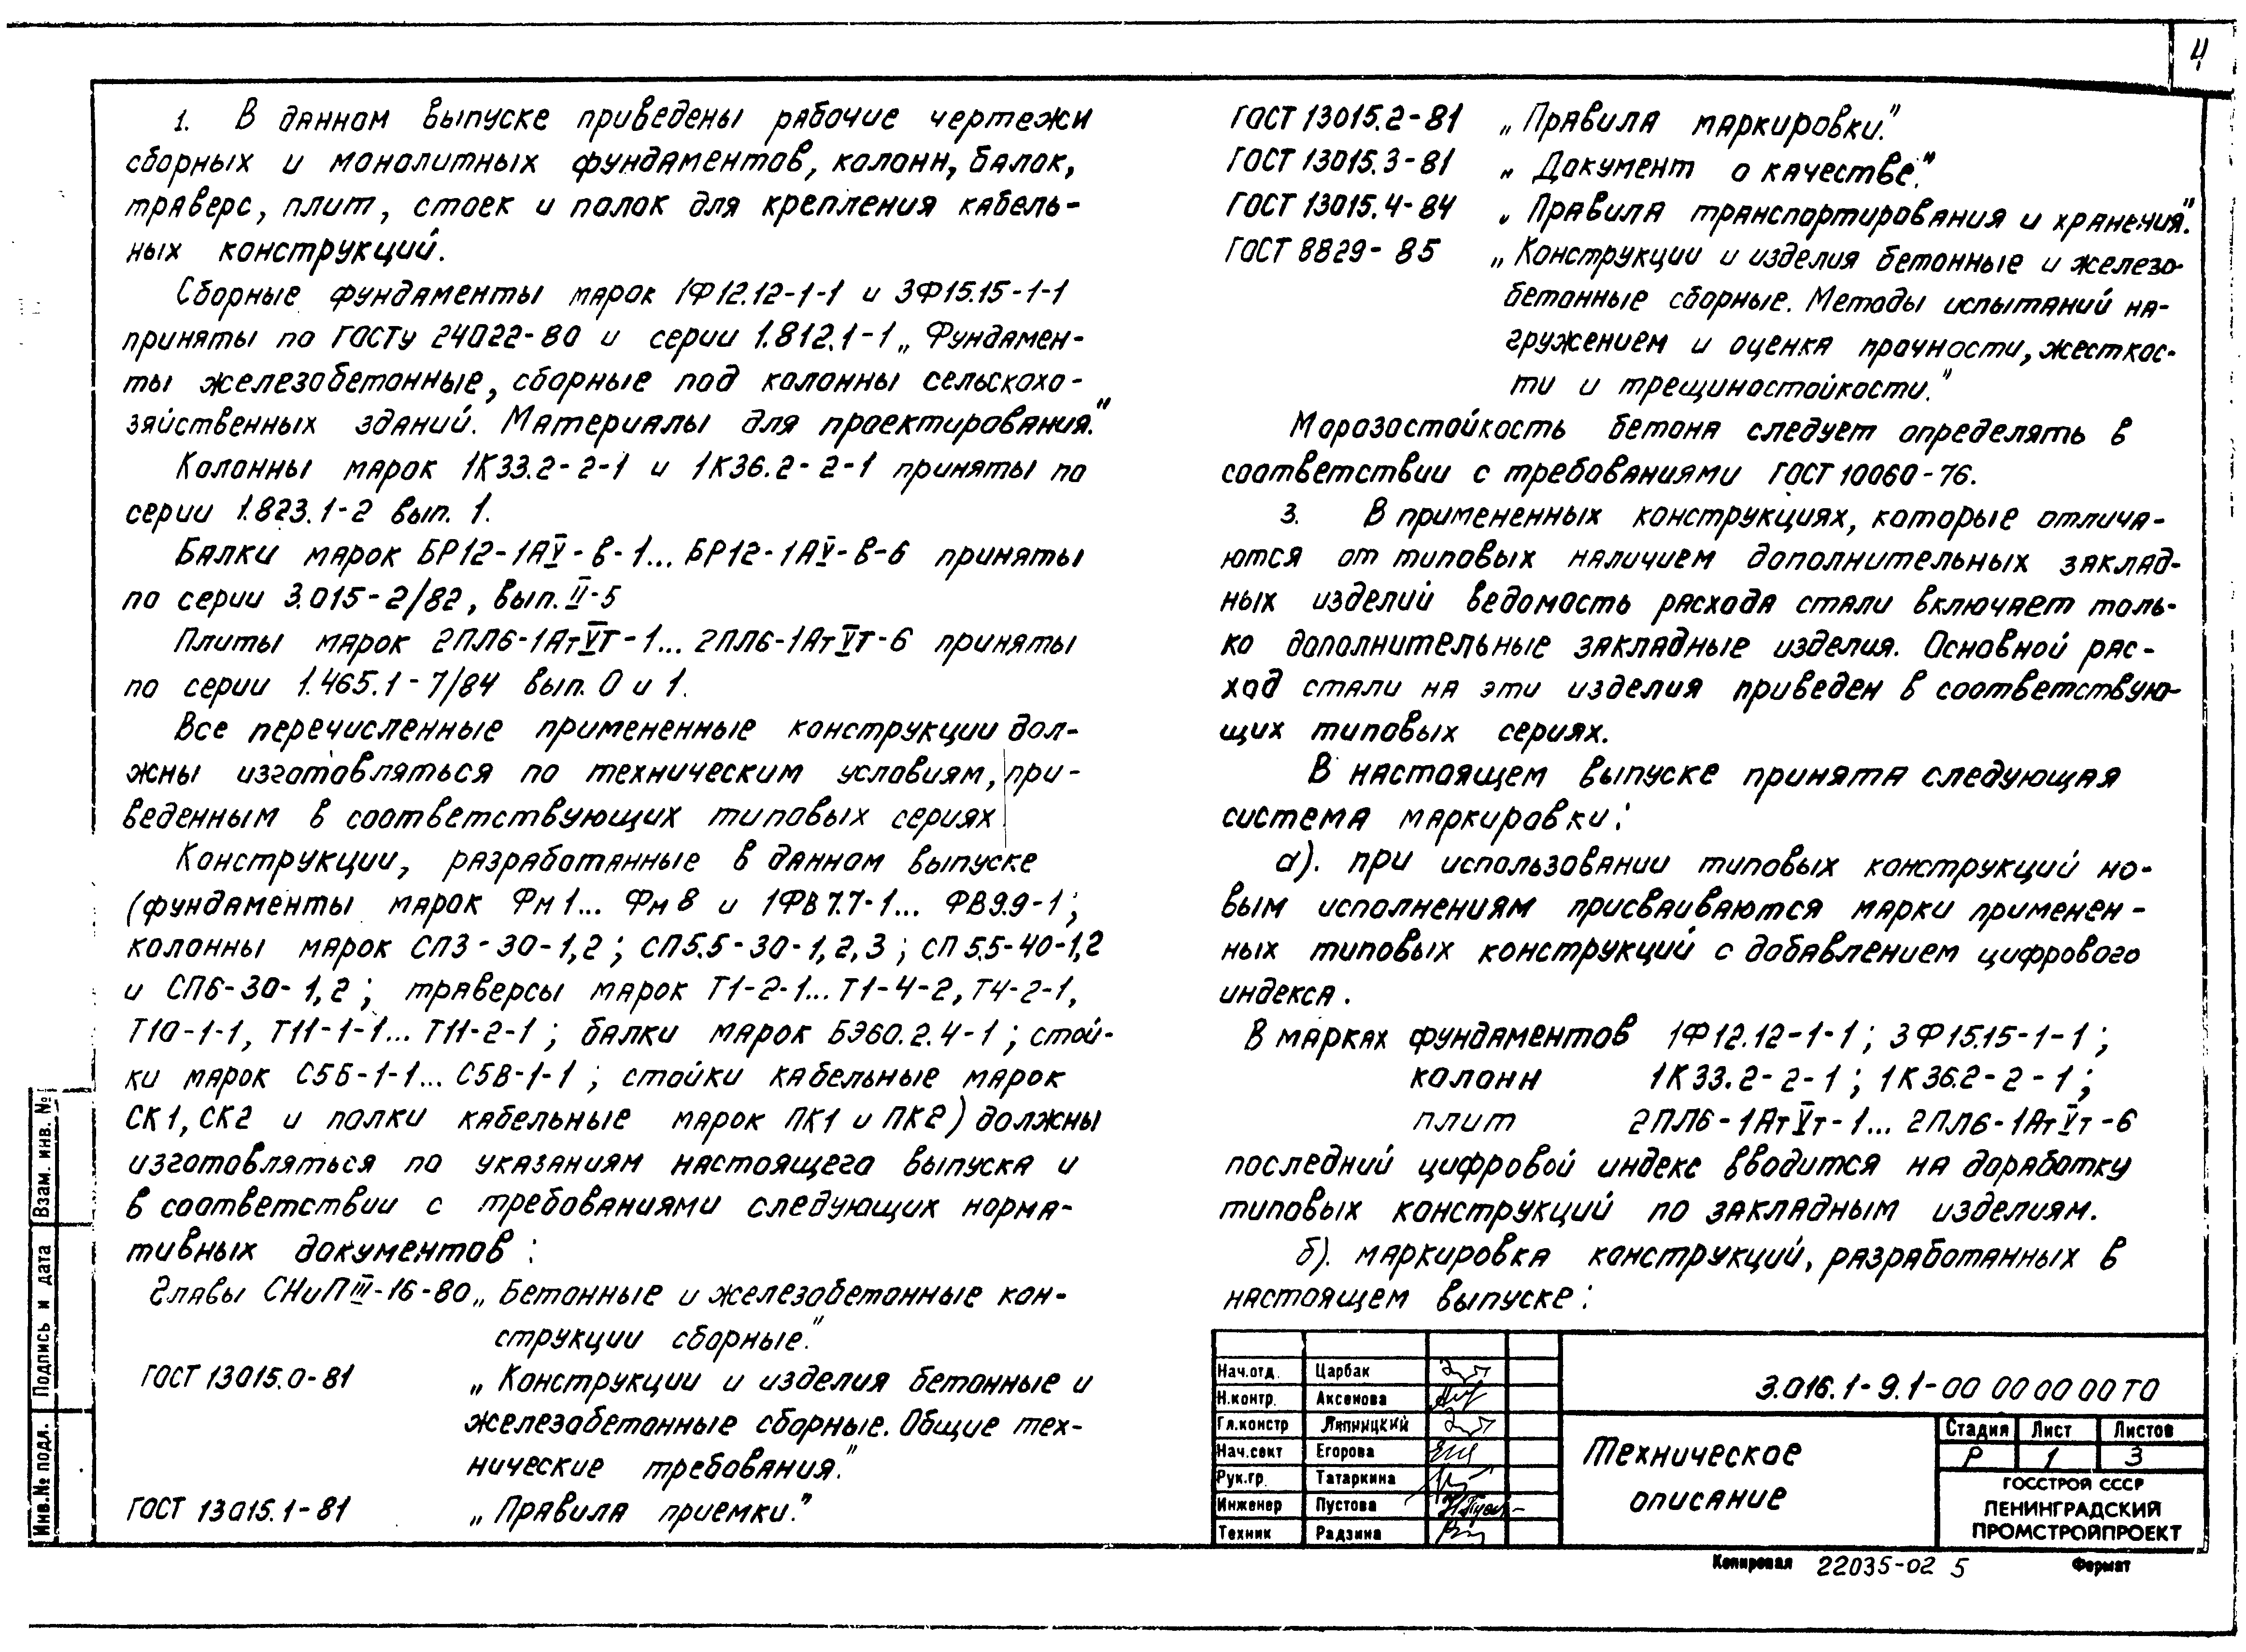 4
1. В данном выпуске приведены рабочие чертежи
сборных и монолитных фундаментов, колонн, балок,
траверс, плит, стоек и полок для крепления кабель-
ных конструкций.
Сборные фундаменты марок 1Ф12.12-1-1 и 3Ф15.15-1-1
приняты по ГОСТу 24022-80 и серии 1.812.1-1 „Фундамен-
ты железобетонные, сборные под колонны сельскохо-
зяйственных зданий. Материалы для проектирования."
Колонны марок 1К33.2-2-1 и 1К36.2-2-1 приняты по
серии 1.823.1-2 вып. 1.
Балки марок БР12-1АV-в-1... БР12-1АV-в-6 приняты
по серии 3.015-2/82, вып. II-5
Плиты марок 2ПЛ6-1АтVТ-1... 2ПЛ6-1АтVТ-6 приняты
по серии 1.465.1-7/84 вып. 0 и 1.
Все перечисленные примененные конструкции дол-
жны изготовляться по техническим условиям, при-
веденным в соответствующих типовых сериях
Конструкции, разработанные в данном выпуске
(фундаменты марок Фм1... Фм8 и 1ФВ7.7-1... ФВ9.9-1;
колонны марок СП3-30-1,2; СП5.5-30-1,2,3; СП5.5-40-1,2
и СП6-30-1,2; траверсы марок Т1-2-1... Т1-4-2, Т4-2-1,
Т10-1-1, Т11-1-1... Т11-2-1; балки марок БЭ60.2.4-1; стой-
ки марок С5Б-1-1... С5В-1-1; стойки кабельные марок
СК1, СК2 и полки кабельные марок ПК1 и ПК2) должны
изготовляться по указаниям настоящего выпуска и
в соответствии с требованиями следующих норма-
тивных документов:
Главы СНиП III-16-80 „Бетонные и железобетонные кон-
струкции сборные."
ГОСТ 13015.0-81 „Конструкции и изделия бетонные и
железобетонные сборные. Общие тех-
нические требования."
ГОСТ 13015.1-81 „Правила приемки."
ГОСТ 13015.2-81 „Правила маркировки."
ГОСТ 13015.3-81 „Документ о качестве."
ГОСТ 13015.4-84 „Правила транспортирования и хранения."
ГОСТ 8829-85 „Конструкции и изделия бетонные и железо-
бетонные сборные. Методы испытаний на-
гружением и оценка прочности, жесткос-
ти и трещиностойкости."
Морозостойкость бетона следует определять в
соответствии с требованиями ГОСТ 10060-76.
3. В примененных конструкциях, которые отлича-
ются от типовых наличием дополнительных заклад-
ных изделий ведомость расхода стали включает толь-
ко дополнительные закладные изделия. Основной рас-
ход стали на эти изделия приведен в соответствую-
щих типовых сериях.
В настоящем выпуске принята следующая
система маркировки:
а). при использовании типовых конструкций но-
вым исполнениям присваиваются марки применен-
ных типовых конструкций с добавлением цифрового
индекса.
В марках фундаментов 1Ф12.12-1-1; 3Ф15.15-1-1;
колонн 1К33.2-2-1; 1К36.2-2-1;
плит 2ПЛ6-1АтVт-1... 2ПЛ6-1АтVт-6
последний цифровой индекс вводится на доработку
типовых конструкций по закладным изделиям.
б). маркировка конструкций, разработанных в
настоящем выпуске:
Взам. инв. №
Подпись и дата
Инв.№ подл.
Нач.отд. Царбак
Н.контр. Аксенова
Гл.констр Ляпницкий
Нач.сект Егорова
Рук.гр. Татаркина
Инженер Пустова
Техник Радзина
3.016.1-9.1-00 00 00 00 ТО
Техническое
описание
Стадия Лист Листов
Р 1 3
ГОССТРОЙ СССР
ЛЕНИНГРАДСКИЙ
ПРОМСТРОЙПРОЕКТ
Копировал 22035-02 5 Формат